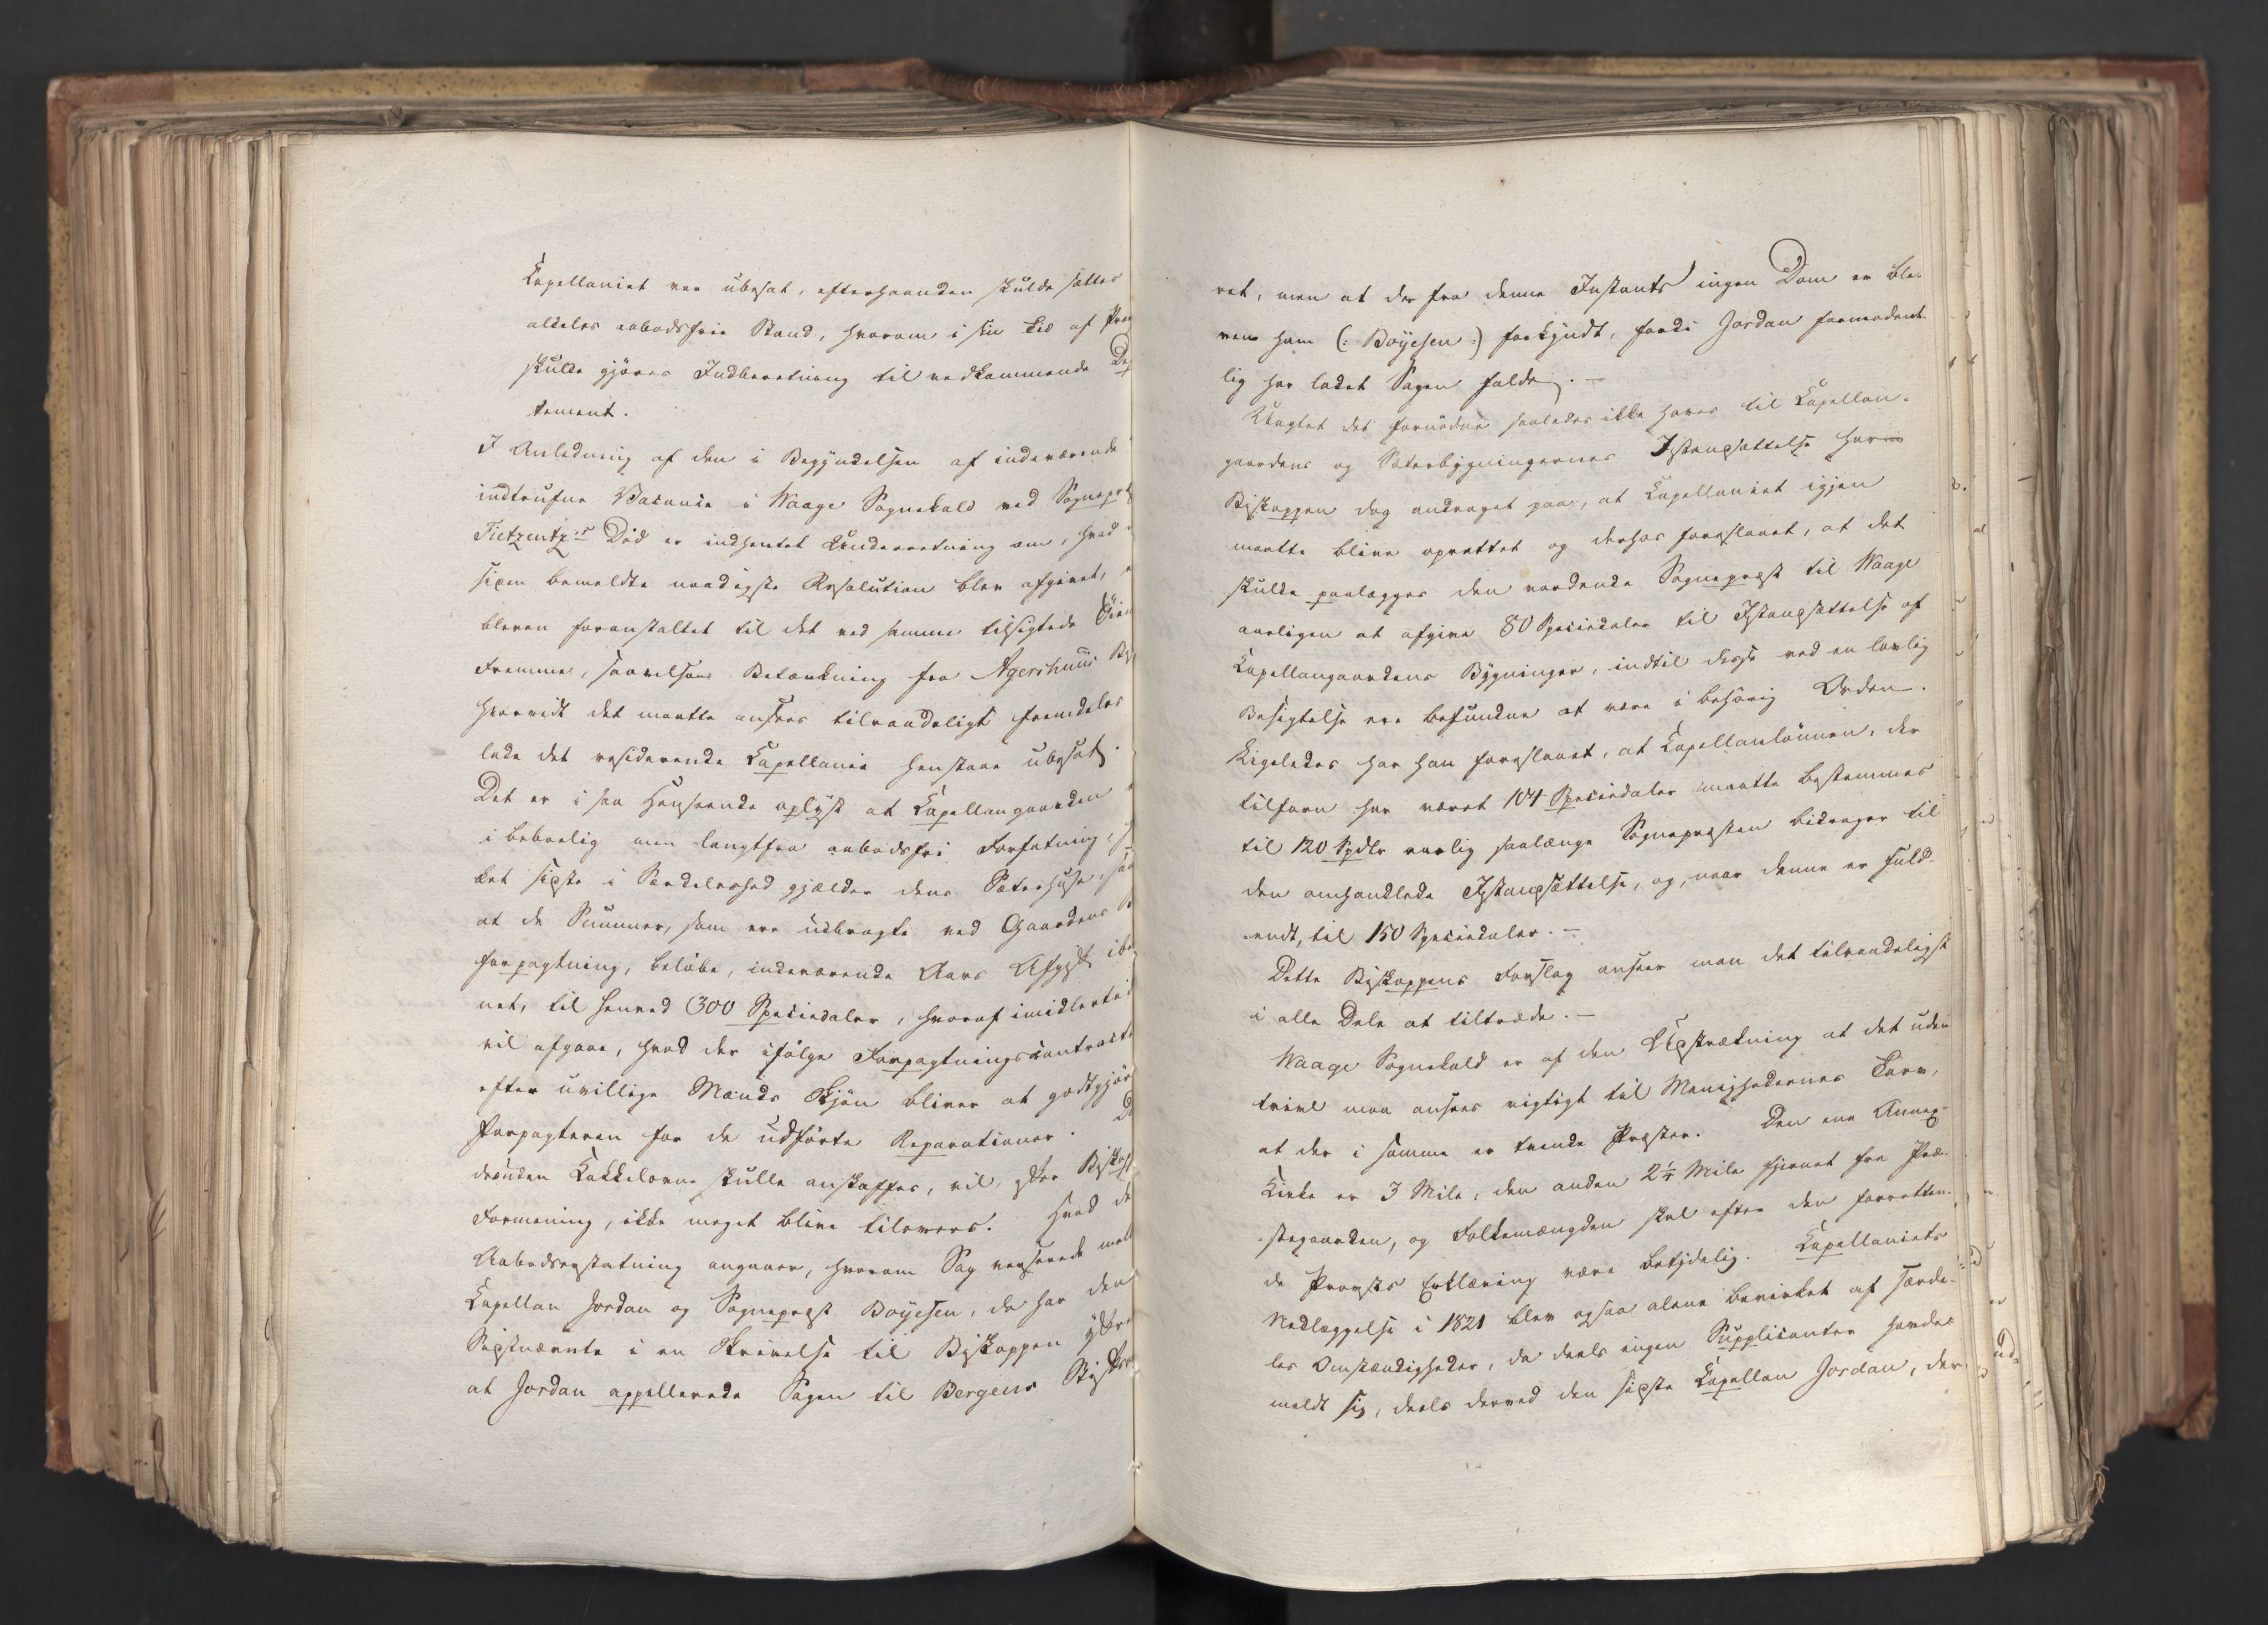 Capellaniet var ubesat, efterhaanden skulde sættes
aldeles aabodsfrie Stand, hvorom i sin Tid af Præ
skulde gjøres Indberetning til vedkommende De
tement.
I Anledning af den i Begyndelsen af indeværende
indtrufne Vacance i Waage Sognekald ved Sognepræ
Tietzentz's Død er indhentet Underretning om, hvad
siden bemeldte naadigste Resolution blev afgivet,
bleven foranstaltet til det ved samme tilsigtede Øiem
Fremme, saavelsom Betænkning fra Agershuus Bi
hvorvidt det maatte ansees tilraadeligt fremdeles
lade det residerende Capellanie henstaae ubesat.
Det er i saa Henseende oplyst at Capellangaarden
i beboelig men langtfra aabodsfri Forfatning, h
ket sidste i Særdeleshed gjælder dens Sæterhuse, sa
at de Summer, som ere udbragte ved Gaardens B
forpagtning, beløbe, indeværende Aars Afgift ibe
net, til henved 300 Speciedaler, hvoraf imidlertid
vil afgaae, hvad der ifølge Forpagtningscontracte
efter uvillige Mænds Skjøn bliver at godtgjør
Forpagteren for de udførte Reparationer. D
desuden Kakkelovne skulle anskaffes, vil, efter Biskop
Formening, ikke meget blive tilovers. Hvad de
Aabodserstatning angaaer, hvorom Sag verserede mel
Capellan Jordan og Sognepræst Boyesen, da har den
Sidstnævnte i en Skrivelse til Biskoppen yttre
at Jordan appellerede Sagen til Bergens Stifts
ret, men at der fra denne Instants ingen Dom er ble-
ven ham (: Boyesen :) forkyndt, fordi Jordan formodent-
lig har ladet Sagen falde. —
Uagtet det fornødne saaledes ikke haves til Capellan-
gaardens og Sæterbygningernes Istandsættelse har
Biskoppen dog andraget paa, at Capellaniet igjen
maatte blive oprettet og derhos foreslaaet, at det
skulde paalægges den vordende Sognepræst til Waage
aarligen at afgive 80 Speciedaler til Istandsættelse af
Capellangaardens Bygninger, indtil disse ved en lovlig
Besigtelse ere befundne at være i behørig Orden.
Ligeledes har han foreslaaet, at Capellanlønnen, der
tilforn har været 104 Speciedaler maatte bestemmes
til 120 Spdlr aarlig saalænge Sognepræsten bidrager til
den omhandlede Istandsættelse, og, naar denne er fuld-
endt, til 150 Speciedaler. —
Dette Biskoppens Forslag anseer man det tilraadeligst
i alle Dele at tiltræde. —
Waage Sognekald er af den Udstrækning at det uden
Tvivl maa ansees vigtigt til Menighedernes Tarv,
at der i samme er tvende Præster. Den ene Annex-
Kirke er 3 Mile, den anden 2¼ Mile fjernet fra Præ-
stegaarden, og Folkemængden skal efter den forretten-
de Provsts Erklæring være betydelig. Capellaniets
Nedlæggelse i 1821 blev ogsaa alene bevirket af særde-
les Omstændigheder, da deels ingen Supplicanter havde
meldt sig, deels derved den sidste Capellan Jordan, der